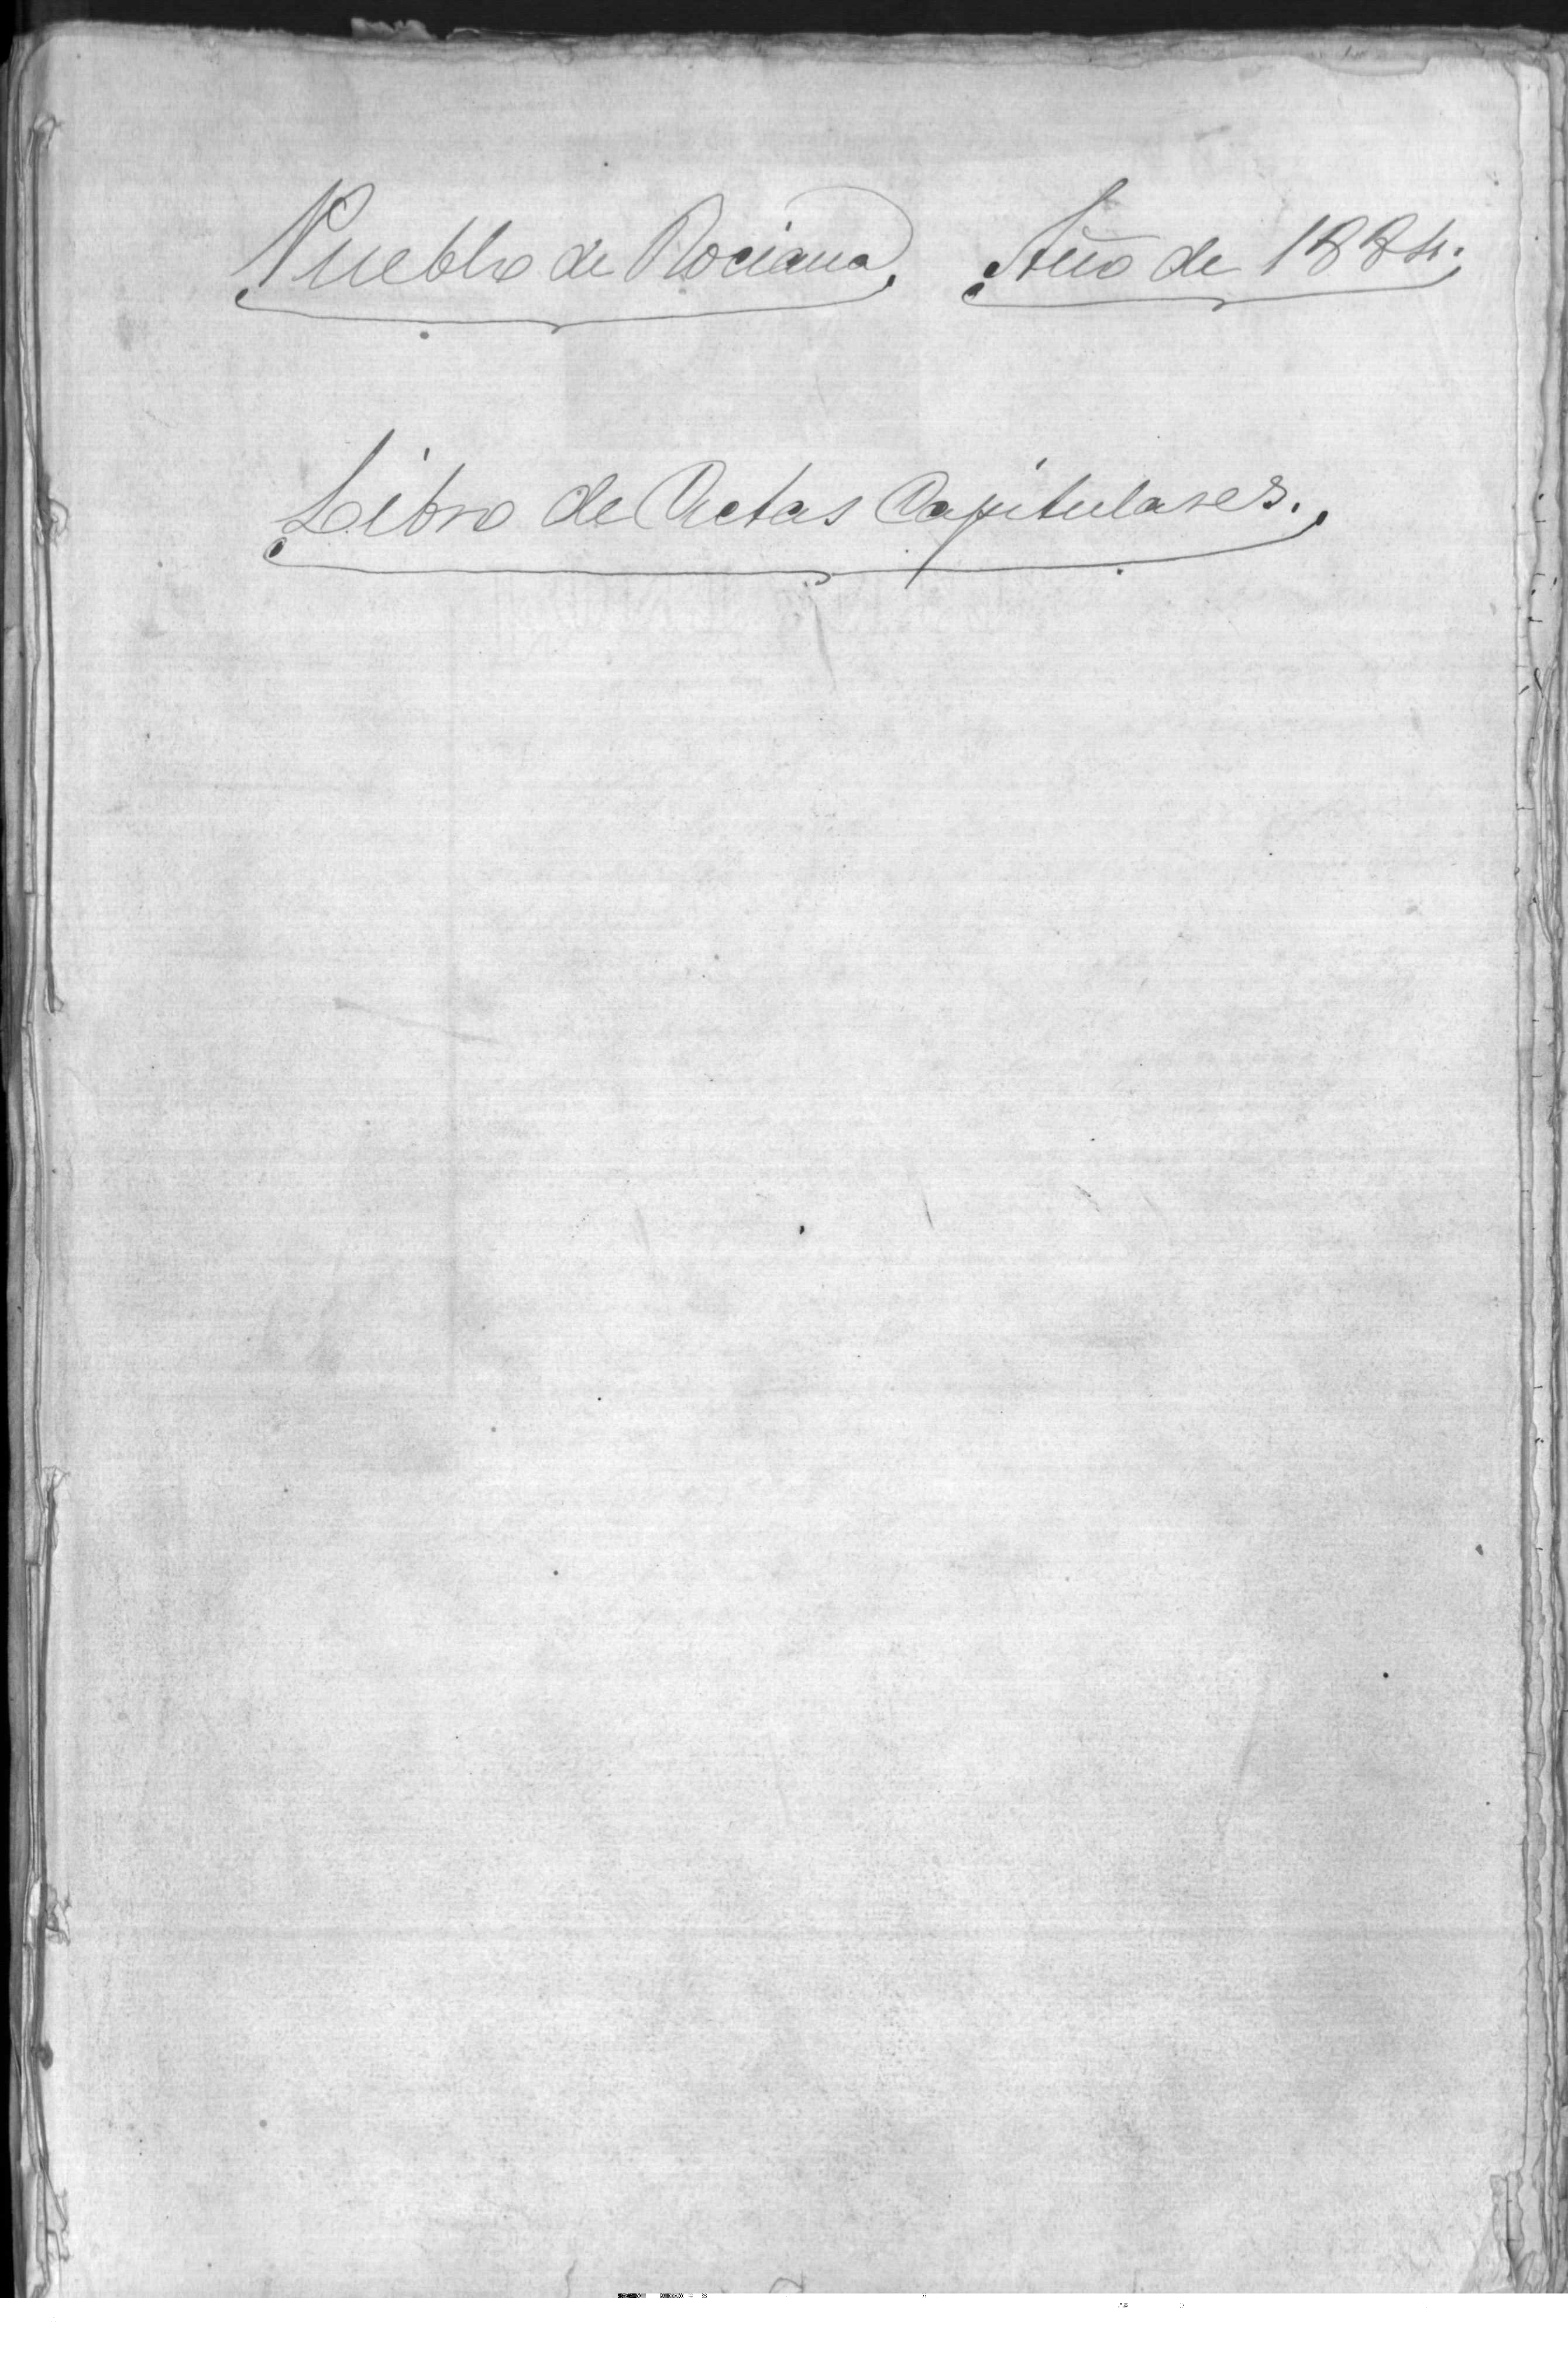 Pueblo de Rociana. Año de 1884.
Libro de Actas Capitulares.